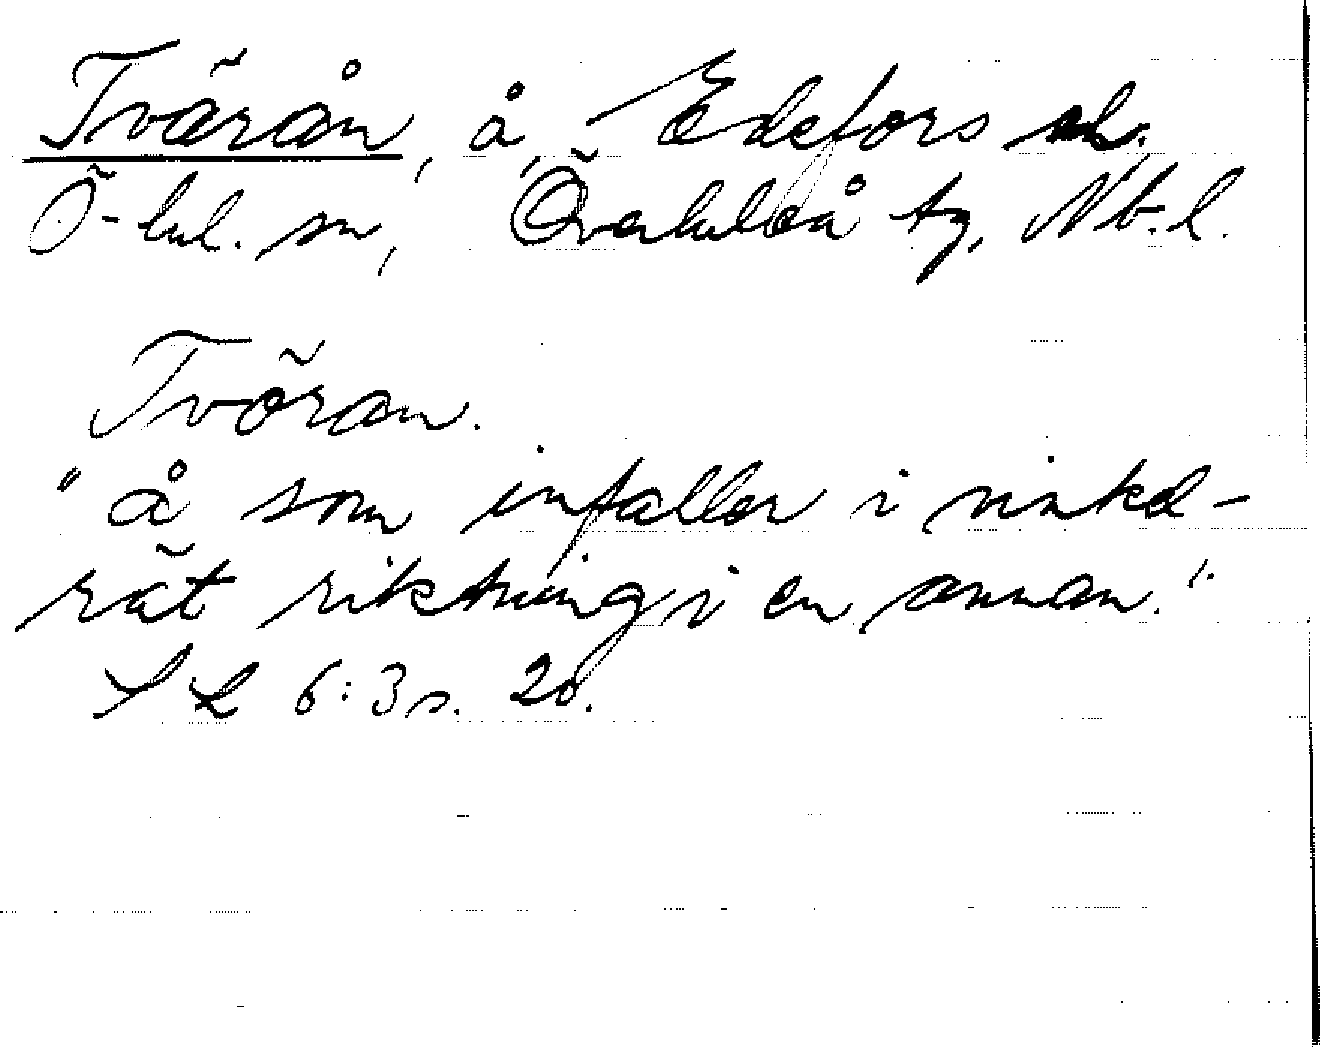 Tvärån, å, Edefors sn.
Ö-lul. sn, Överluleå tg, Nb.l.
Tvöran.
"å som infaller i vinkel-
rät riktning i en annan."
SL 6:3 s. 20.